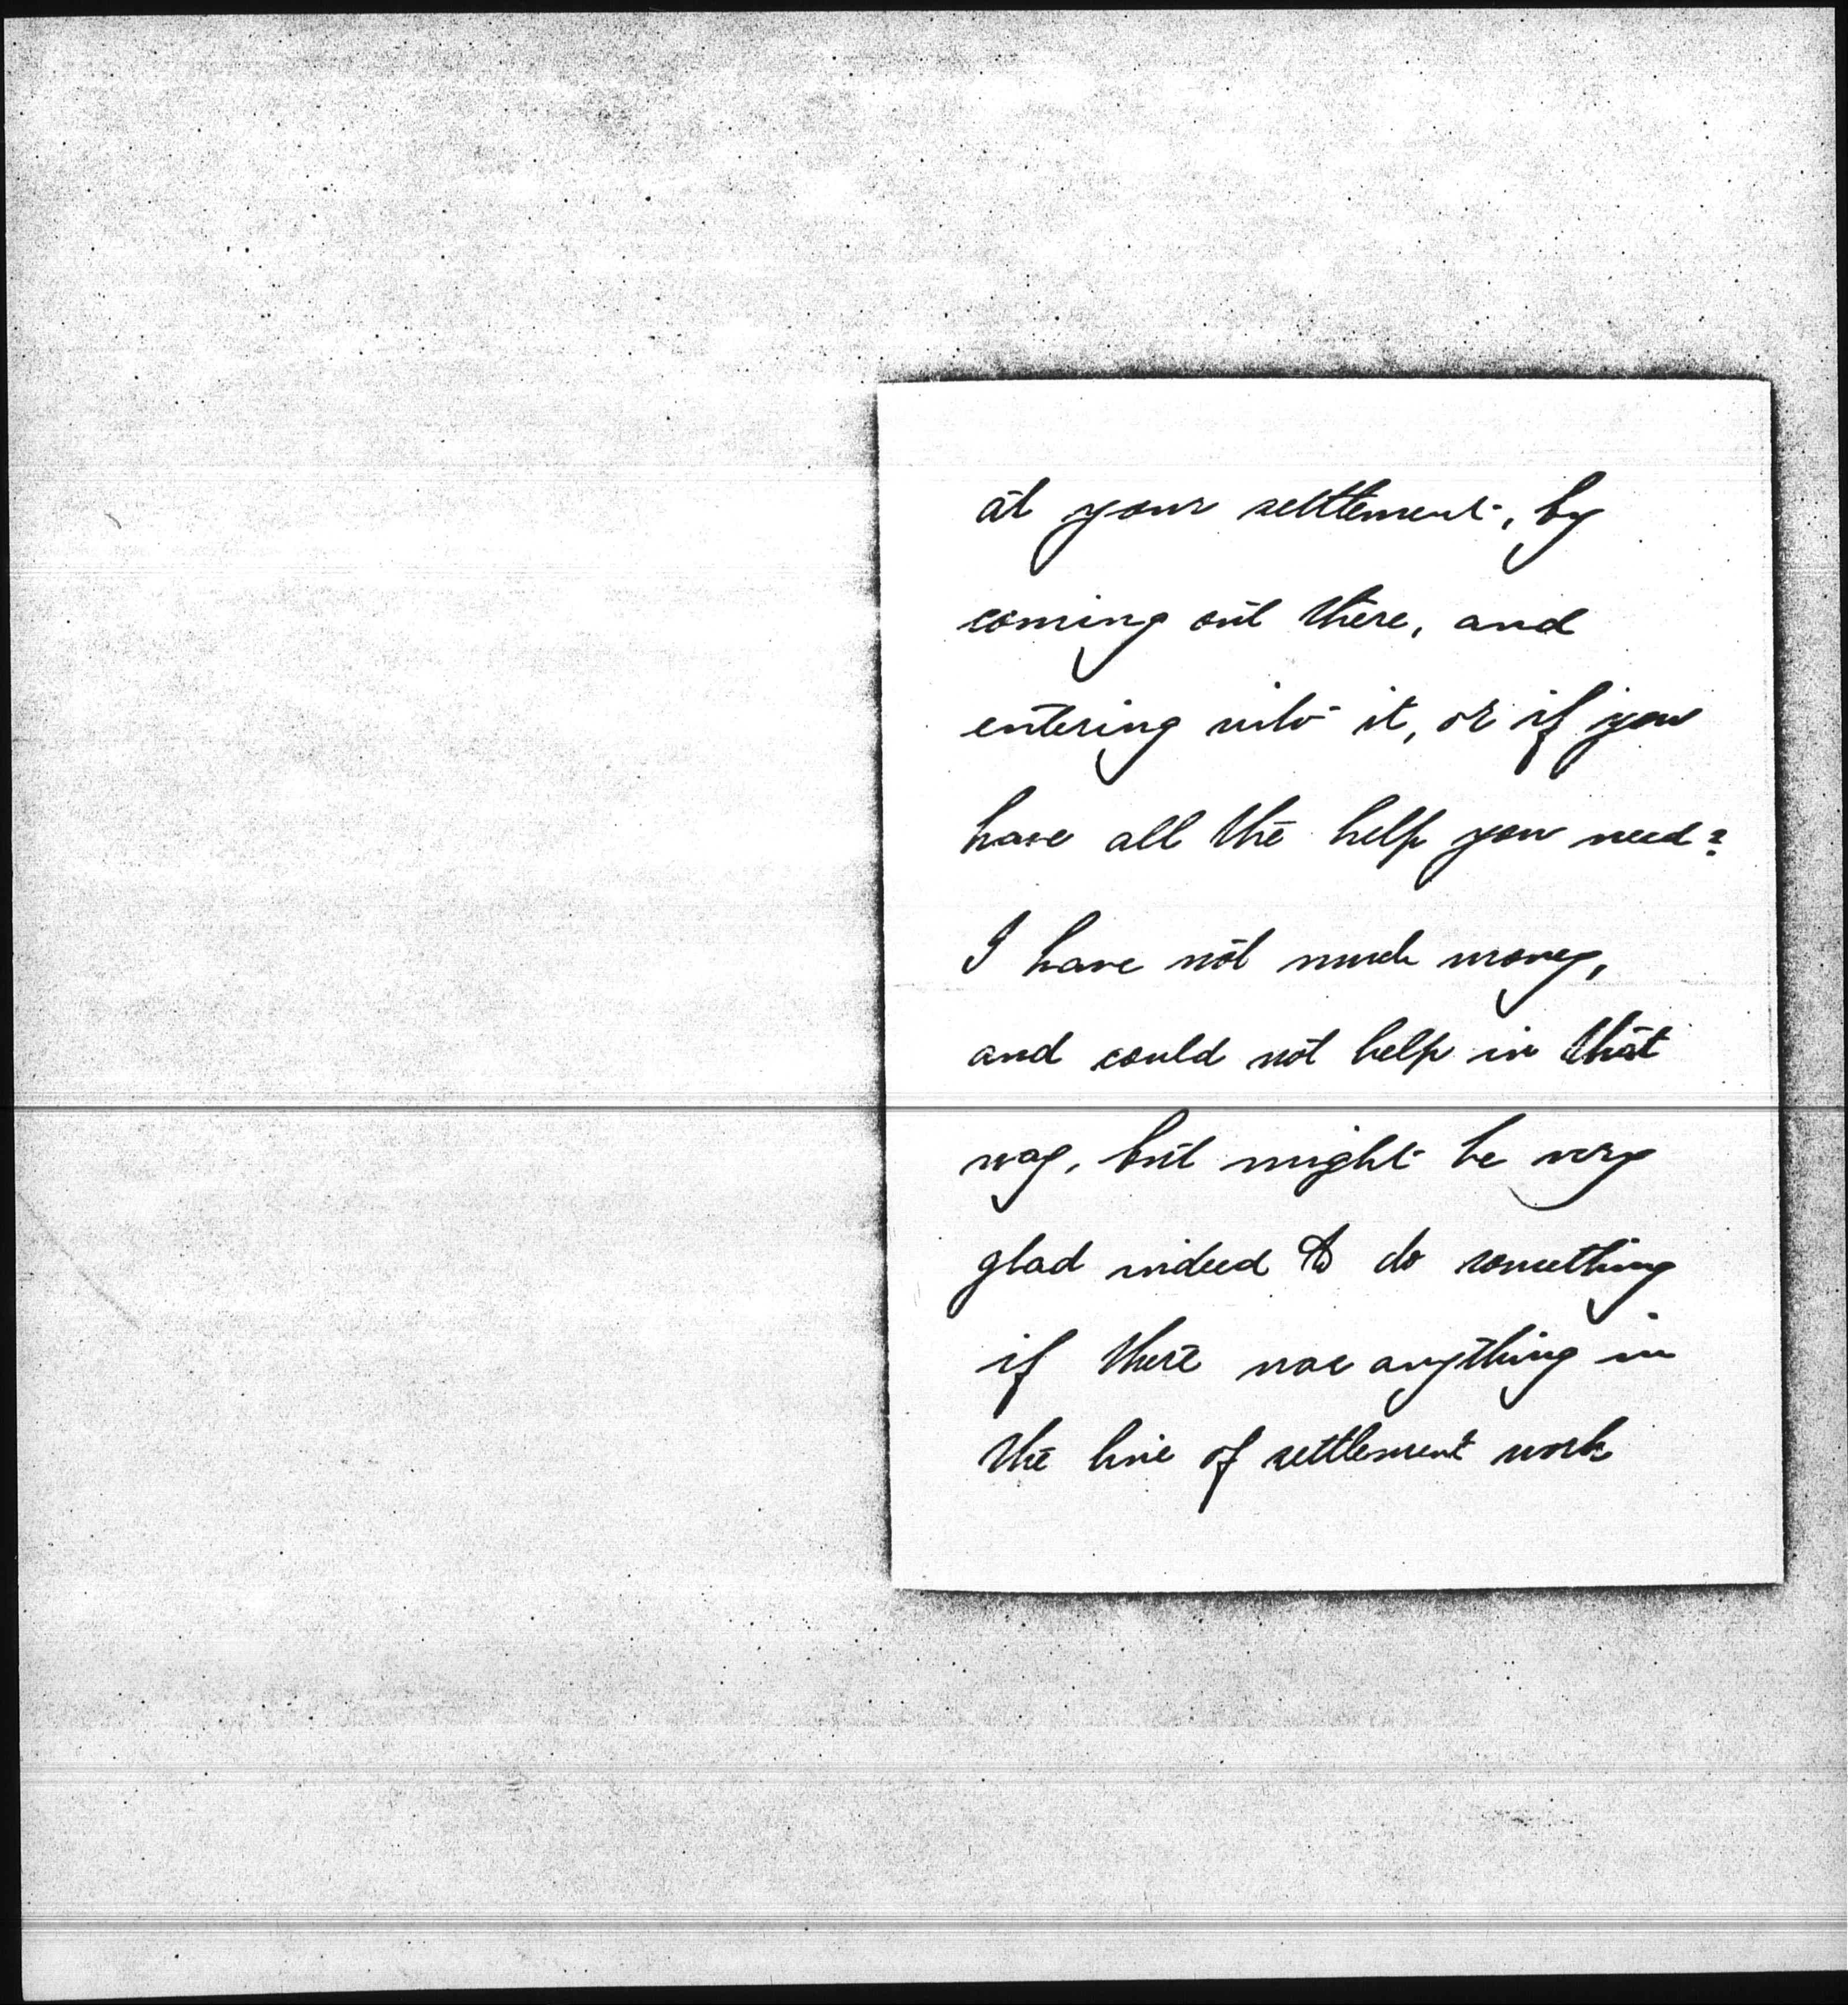 at your settlement, by
coming out there, and
entering into it, or if you
have all the help you need?
I have not much money,
and could not help in that
way, but might be very
glad indeed to do something
if there was anything in
the line of settlement work